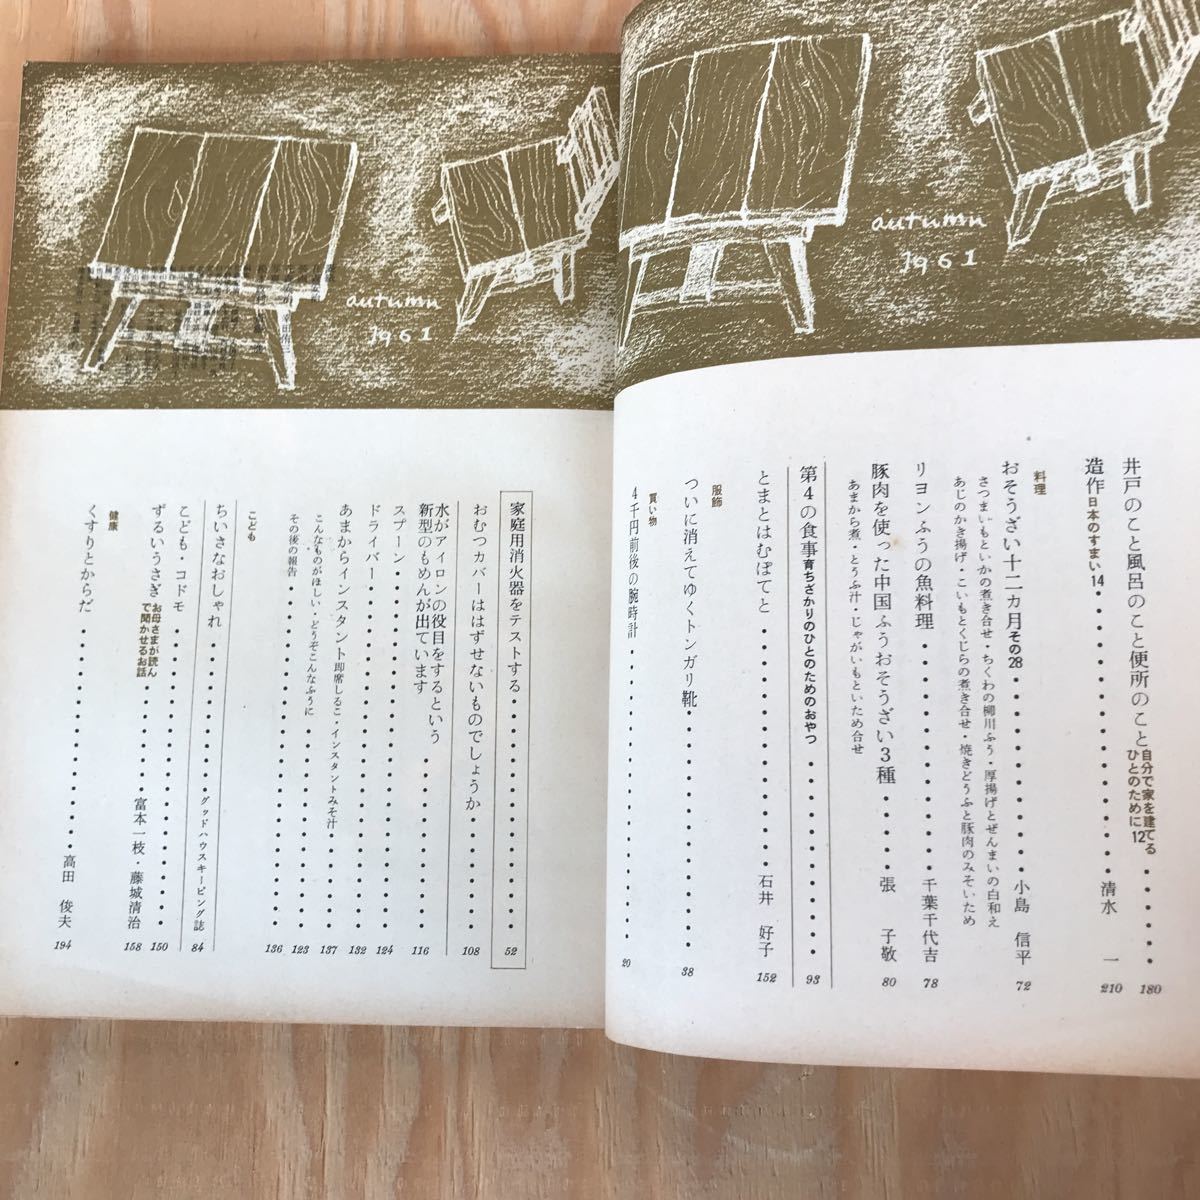 autumn
1961
井戸のこと風呂のこと便所のこと 自分で家を建てるひとのために12 ・・・・・ 180
造作 日本のすまい14 ・・・・・ 清水 一 210
料理
おそうざい十二カ月 その28 ・・・・・ 小島 信平 72
さつまいもといかの煮き合せ・ちくわの柳川ふう・厚揚げとぜんまいの白和え
あじのかき揚げ・こいもとくじらの煮き合せ・焼きどうふと豚肉のみそいため
リヨンふうの魚料理 ・・・・・ 千葉千代吉 78
豚肉を使った中国ふうおそうざい3種 ・・・・・ 張 子敬 80
あまから煮・とうふ汁・じゃがいもといため合せ
第4の食事 育ちざかりのひとのためのおやつ ・・・・・ 93
とまとはむぽてと ・・・・・ 石井 好子 152
服飾
ついに消えてゆくトンガリ靴 ・・・・・ 38
買い物
4千円前後の腕時計 ・・・・・ 20
autumn
1961
家庭用消火器をテストする ・・・・・ 52
おむつカバーははずせないものでしょうか ・・・・・ 108
水がアイロンの役目をするという
新型のもめんが出ています ・・・・・ 116
スプーン ・・・・・ 124
ドライバー ・・・・・ 132
あまからインスタント 即席しるこ・インスタントみそ汁 137
こんなものがほしい・どうぞこんなふうに ・・・・・ 123
その後の報告 ・・・・・ 136
こども
ちいさなおしゃれ ・・・・・ グッドハウスキーピング誌 84
こども・コドモ ・・・・・ 150
ずるいうさぎ お母さまが読んで聞かせるお話 ・・・・・ 富本一枝・藤城清治 158
健康
くすりとからだ ・・・・・ 高田 俊夫 194